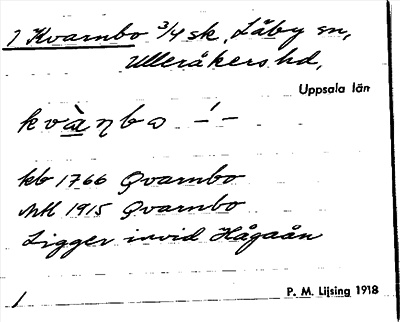 1 Kvarnbo 3/4 sk, Läby sn,
Ulleråkers hd,
Uppsala län
kvàɳbo –´–
kb 1766 Qvarnbo
Mtl 1915 Qvarnbo
Ligger invid Hågaån
1
P. M. Lijsing 1918